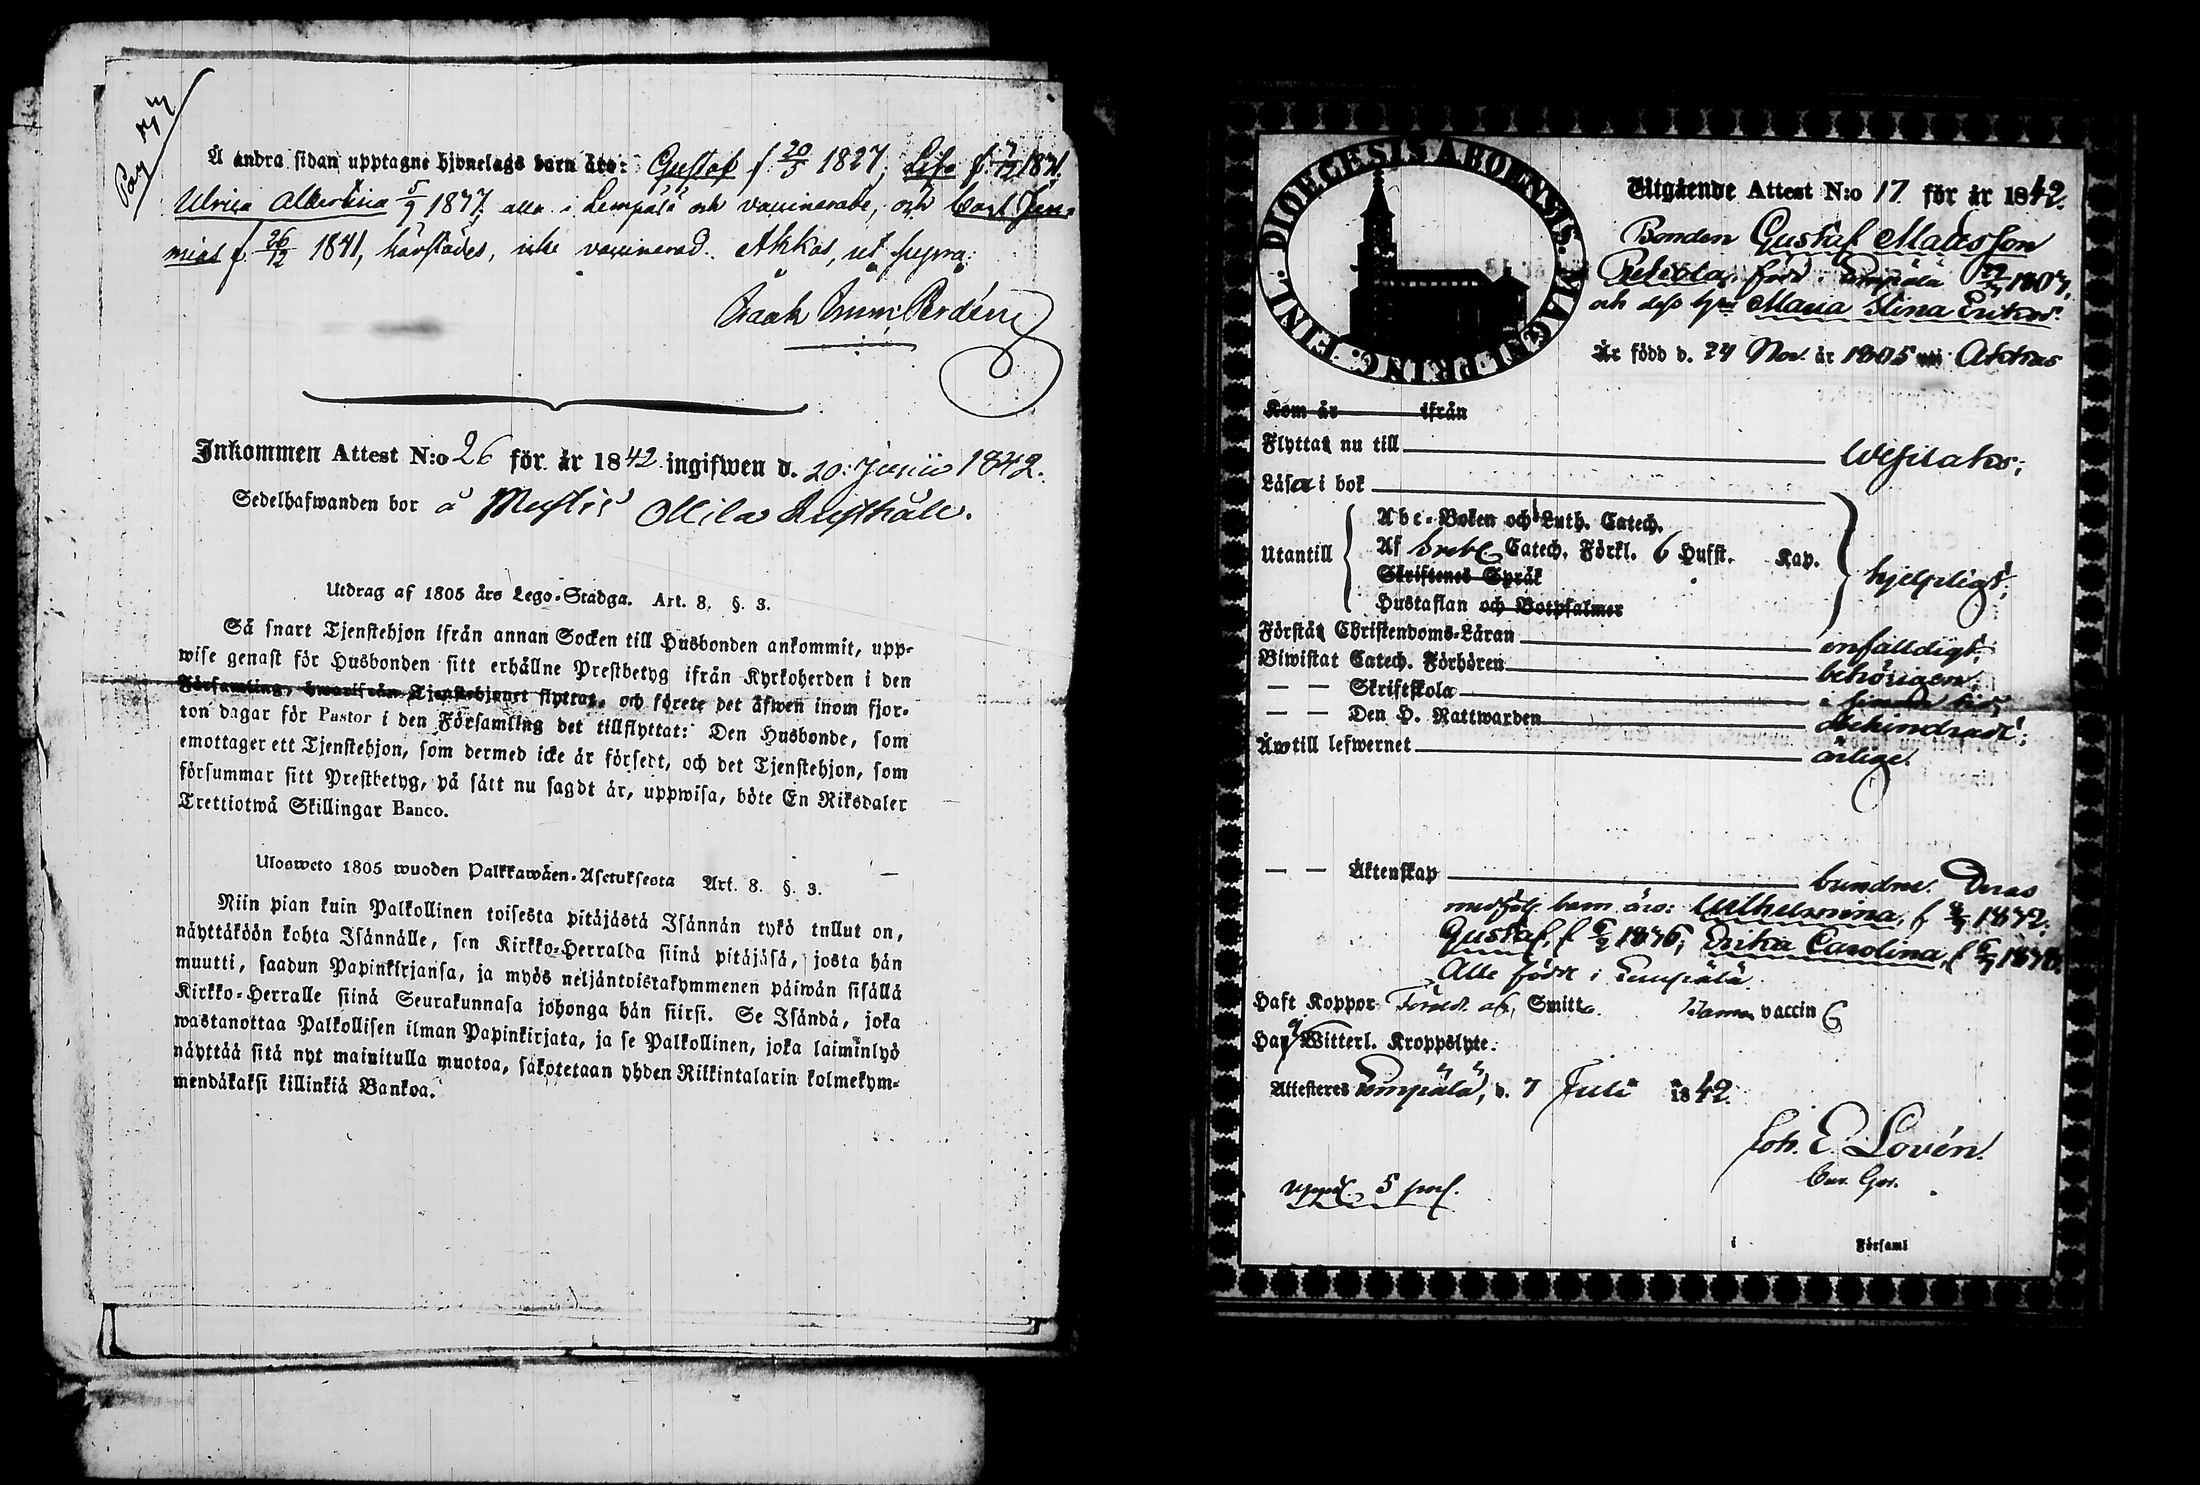 Pag
Å andra sidan upptagne hjonelags barn äro: Gustaf f. 20/5 1827, Lisa f.
Ulrica Albertina 1837, alla i Lempälä och vaccinerade, och Carl Jere-
mias f. 26/12 1841, härstädes, icke vaccinerad. Akkas, ut supra
Isaak Imm: Perdén
Inkommen Attest N:o 26 för år 1842 ingifwen d. 20: Junii 1842.
Sedelhafwanden bor å
Utdrag af 1805 års Lego-Stadga. Art. 8. §. 3.
Så snart Tjenstehjon ifrån annan Socken till Husbonden ankommit, upp-
wise genast för Husbonden sitt erhållne Prestbetyg ifrån Kyrkoherden i den
Församling, hwarifrån Tjenstehjonet flyttat, och förete det äfwen inom fjor-
ton dagar för Pastor i den Församling det tillflyttat: Den Husbonde, som
emottager ett Tjenstehjon, som dermed icke är försedt, och det Tjenstehjon, som
försummar sitt Prestbetyg, på sätt nu sagdt är, uppwisa, böte En Riksdaler
Trettiotwå Skillingar Banco.
Ulosweto 1805 wuoden Palkkawäen-Asetuksesta Art. 8. §. 3.
Niin pian kuin Palkollinen toisesta pitäjästä Isännän tykö tullut on,
näyttäköön kohta Isännälle, sen Kirkko-Herralda siinä pitäjäsä, josta hän
muutti, saadun Papinkirjansa, ja myös neljäntoistakymmenen päiwän sisällä
Kirkko-Herralle siinä Seurakunnasa johonga hän siirsi. Se Isändä, joka
wastanottaa Palkollisen ilman Papinkirjata, ja se Palkollinen, joka laiminlyö
näyttää sitä nyt mainitulla muotoa, sakotetaan yhden Rikkintalarin kolmekym-
mendäkaksi killinkiä Bankoa.
DIOECESIS ABOENSIS. MAGNI PRINC. FINL.
Utgående Attest N:o 17 för år 1842.
Bonden Gustaf Mattsson
född i Lempälä 1807,
och dess h:u Maria Stina Eriksd:
Är född d. 24 Nov. år 1805 uti Akkas
Kom år ifrån
Flyttar nu till Wesilaks;
Läser i bok
Abc-Boken och Luth. Catech.
Utantill Af Sveb. Catech. Förkl. 6 Hufst. Kap. hjelpligt;
Skriftenes Språk
Hustaflan och Botpsalmer
Förstår Christendoms-Läran enfalldigt;
Biwistat Catech. Förhören behörigen;
— — Skriftskola i sinom tid;
— — Den H. Nattwarden obehindradt;
Äwtill lefwernet ärlige.
— — Äktenskap bundne. Deras
barn äro: Wilhelmina, f.
Gustaf, f. 1836; Erika Carolina, f.
Alle födde i Lempälä
Haft Koppor Smitto. vaccin
Har Witterl. Kroppslyte.
Attesteres Lempälä, d. 7 Juli 1842.
Joh. E. Lovén.
5
i Församl